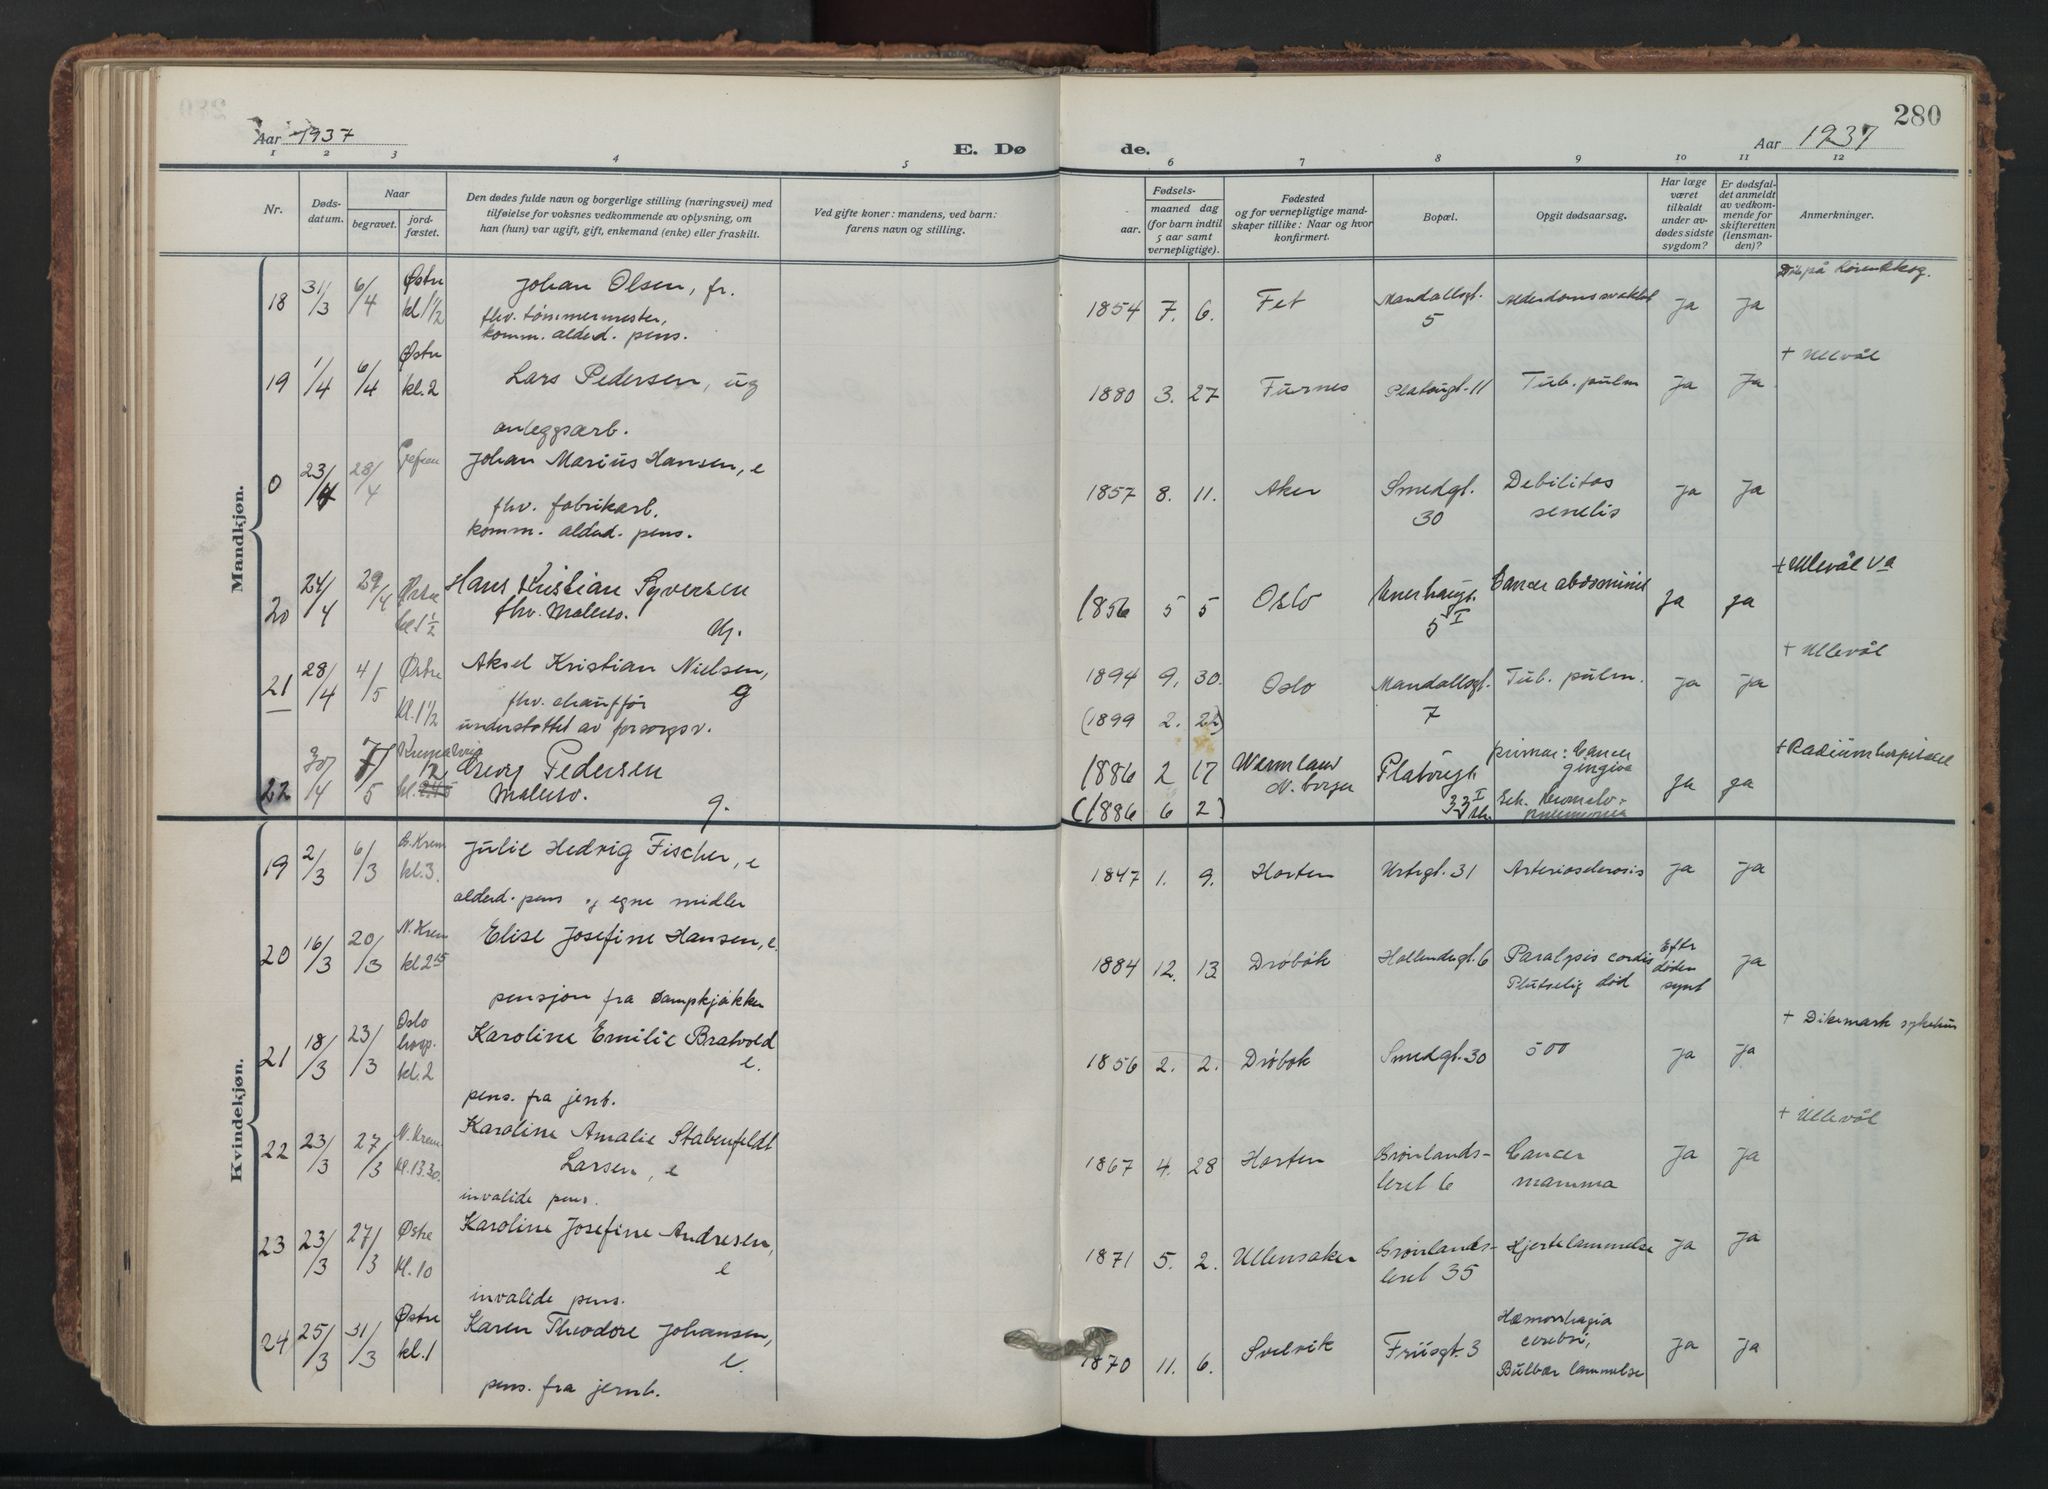 280
Aar 1937
E. Dø
de.
Aar 1937
1 2 3 4 5 6 7 8 9 10 11 12
Nr.
Døds-
datum.
Naar
begravet.
jord-
fæstet.
Den dødes fulde navn og borgerlige stilling (næringsvei) med
tilføielse for voksnes vedkommende av oplysning, om
han (hun) var ugift, gift, enkemand (enke) eller fraskilt.
Ved gifte koner: mandens, ved barn:
farens navn og stilling.
Fødsels-
aar.
maaned dag
(for barn indtil
5 aar samt
vernepligtige).
Fødested
og for vernepligtige mand-
skaper tillike: Naar og hvor
konfirmert.
Bopæl.
Opgit dødsaarsag.
Har læge
været
tilkaldt
under av-
dødes sidste
sygdom?
Er dødsfal-
det anmeldt
av vedkom-
mende for
skifteretten
(lensman-
den)?
Anmerkninger.
Mandkjøn.
18 31/3 6/4 Østre kl. 1 1/2 Johan Olsen, fr. 1854 7. 6. Fet Mandallsgt. 5 Alderdomssvakhet ja ja
fhv. tømmermester,
komm. alderd. pens.
19 1/4 6/4 Østre kl. 2 Lars Pedersen, ug 1880 3. 27 Furnes Platougt. 11 Tub. pulm ja ja + Ullevål
anleggsarb.
0 23/4 28/4 Johan Marius Hansen, e 1857 8. 11. Aker Smedgt. 30 Debilitas senelis ja ja
fhv. fabrikarb.
komm. alderd. pens.
20 24/4 29/4 Østre kl 1 1/2 Hans Kristian Syversen 1856 5 5 Oslo 5 I Cancer abdominis ja ja + Ullevål Va
fhv. Malersv.
21 28/4 4/5 Østre kl. 1 1/2 Aksel Kristian Nielsen, g 1894 9. 30. Oslo Mandallsgt. 7 Tub. pulm. ja ja + Ullevål
fhv. chauffør (1899 2. 22)
understøttet av forsorgsv.
22 30/4 7/5 Georg Pedersen 1886 2 17 Wermland N. borger Platougt. 33 I primær: Cancer gingiva ja ja + Radiumhospitalet
Malersv. g. (1886 6 2) Sek. pneumonia
Kvindekjøn.
19 2/3 6/3 G. Krem kl. 3. Julie Hedvig Fischer, e 1847 1. 9. Horten Urtegt. 31 Arteriosclerosis ja ja
alderd. pens og egne midler
20 16/3 20/3 N. Krem kl 2 15 Elise Josefine Hansen, e. 1884 12. 13 Drøbak Hollendergt. 6 Paralysis cordis Plutselig død Efter døden synt ja
pensjon fra Dampkjøkken
21 18/3 23/3 Oslo hosp. kl. 2 Karoline Emilie Bratvold e. 1856 2. 2. Drøbak Smedgt. 30 500 ja ja + Dikemark sykehus
pens. fra jernb.
22 23/3 27/3 N. Krem kl. 13.30. Karoline Amalie Stabenfeldt 1867 4. 28 Horten Grønlands- leret 6 Cancer mamma ja ja + Ullevål
Larsen, e
invalide pens.
23 23/3 27/3 Østre kl. 10 Karoline Josefine Andresen, e 1871 5. 2. Ullensaker Grønlands- leret 35 Hjertelammelse ja ja
invalide pens.
24 25/3 31/3 Østre kl. 1 Karen Theodore Johansen, e. 1870 11. 6. Svelvik Friisgt. 3 Hæmorrhagia cerebri, Bulbær lammelse ja ja
pens. fra jernb.